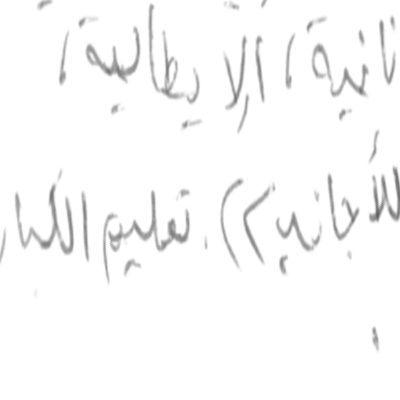 نانية، الإيطالية،
للأجانب ٢). تعليم الكبار